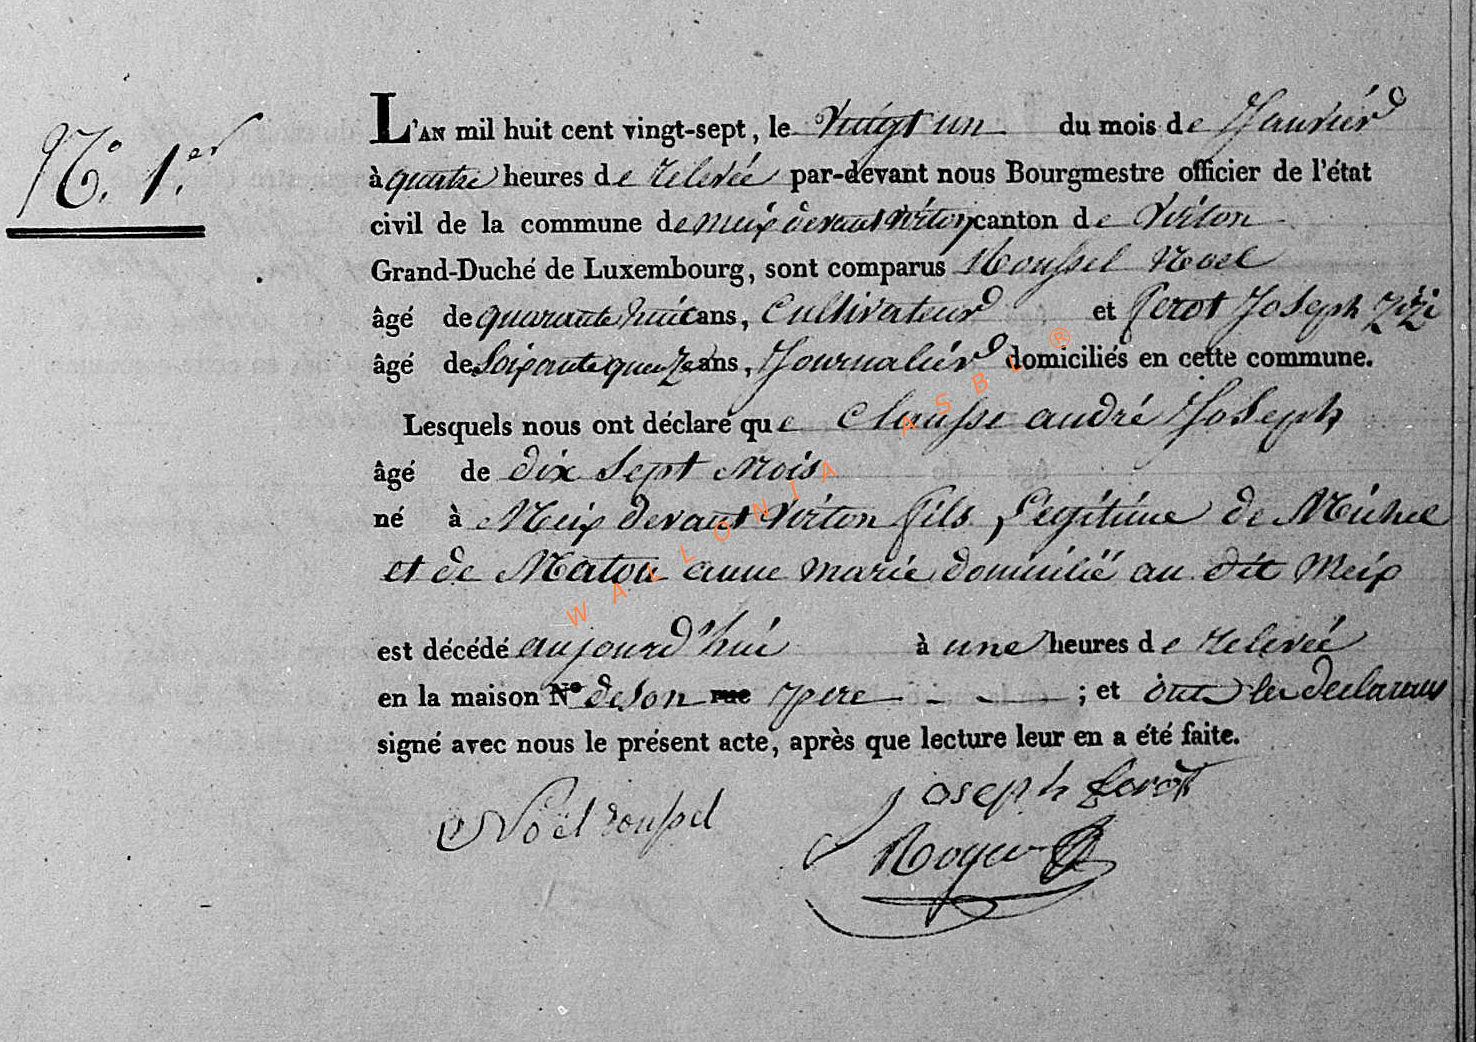 N.° 1.er
L'AN mil huit cent vingt-sept, le Vingt un du mois de Janvier
à quatre heures de relevée par-devant nous Bourgmestre officier de l'état
civil de la commune de meix devant virton canton de Virton
Grand-Duché de Luxembourg, sont comparus Roussel Noel
âgé de quarante huit ans, Cultivateur et ferot Joseph Zizi
âgé de Soixante quinze ans, Journalier domiciliés en cette commune.
Lesquels nous ont déclaré que Clausse andré Joseph
âgé de dix Sept Mois
né à Meix devant Virton fils Legitime de Michel
et de Maton anne marie domicilié au dit Meix
est décédé aujourd'hui à une heures de relevée
en la maison N° de Son rue pere ; et ont les declarans
signé avec nous le présent acte, après que lecture leur en a été faite.
Noël roussel Joseph ferot
Roger
WALLONIA ASBL ®